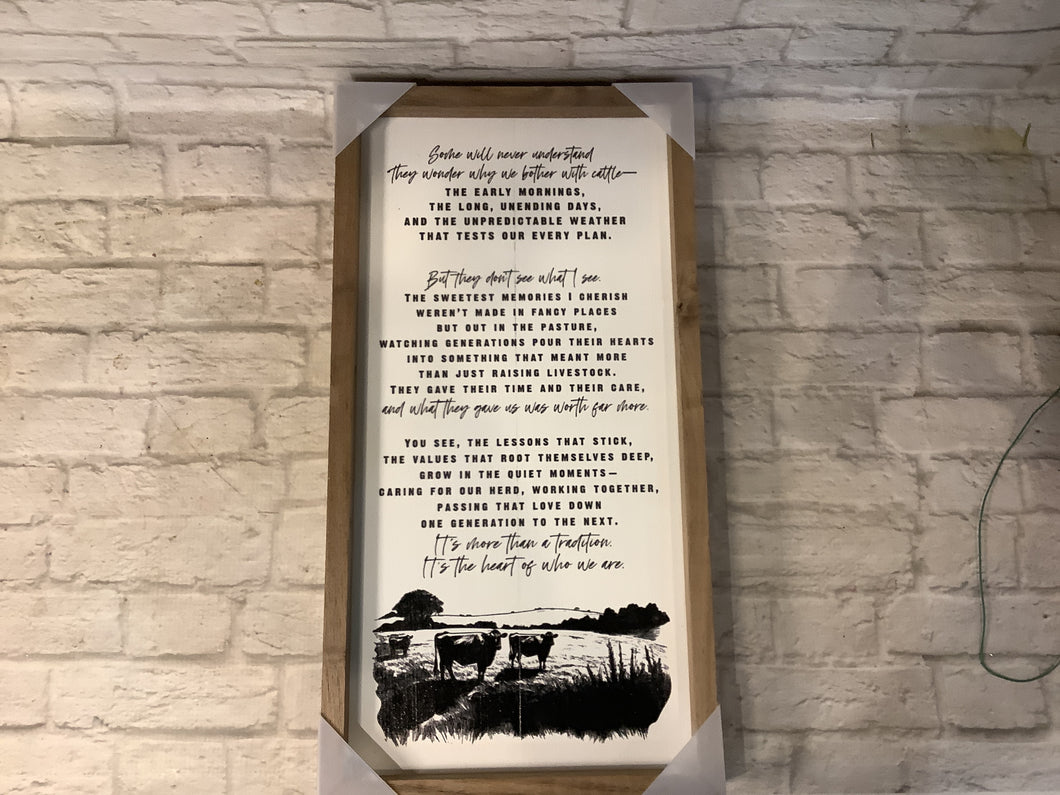 Some will never understand
They wonder why we bother with cattle—
THE EARLY MORNINGS,
THE LONG, UNENDING DAYS,
AND THE UNPREDICTABLE WEATHER
THAT TESTS OUR EVERY PLAN.
But they don't see what I see.
THE SWEETEST MEMORIES I CHERISH
WEREN'T MADE IN FANCY PLACES
BUT OUT IN THE PASTURE,
WATCHING GENERATIONS POUR THEIR HEARTS
INTO SOMETHING THAT MEANT MORE
THAN JUST RAISING LIVESTOCK.
THEY GAVE THEIR TIME AND THEIR CARE,
and what they gave us was worth far more.
YOU SEE, THE LESSONS THAT STICK,
THE VALUES THAT ROOT THEMSELVES DEEP,
GROW IN THE QUIET MOMENTS—
CARING FOR OUR HERD, WORKING TOGETHER,
PASSING THAT LOVE DOWN
ONE GENERATION TO THE NEXT.
It's more than a tradition.
It's the heart of who we are.